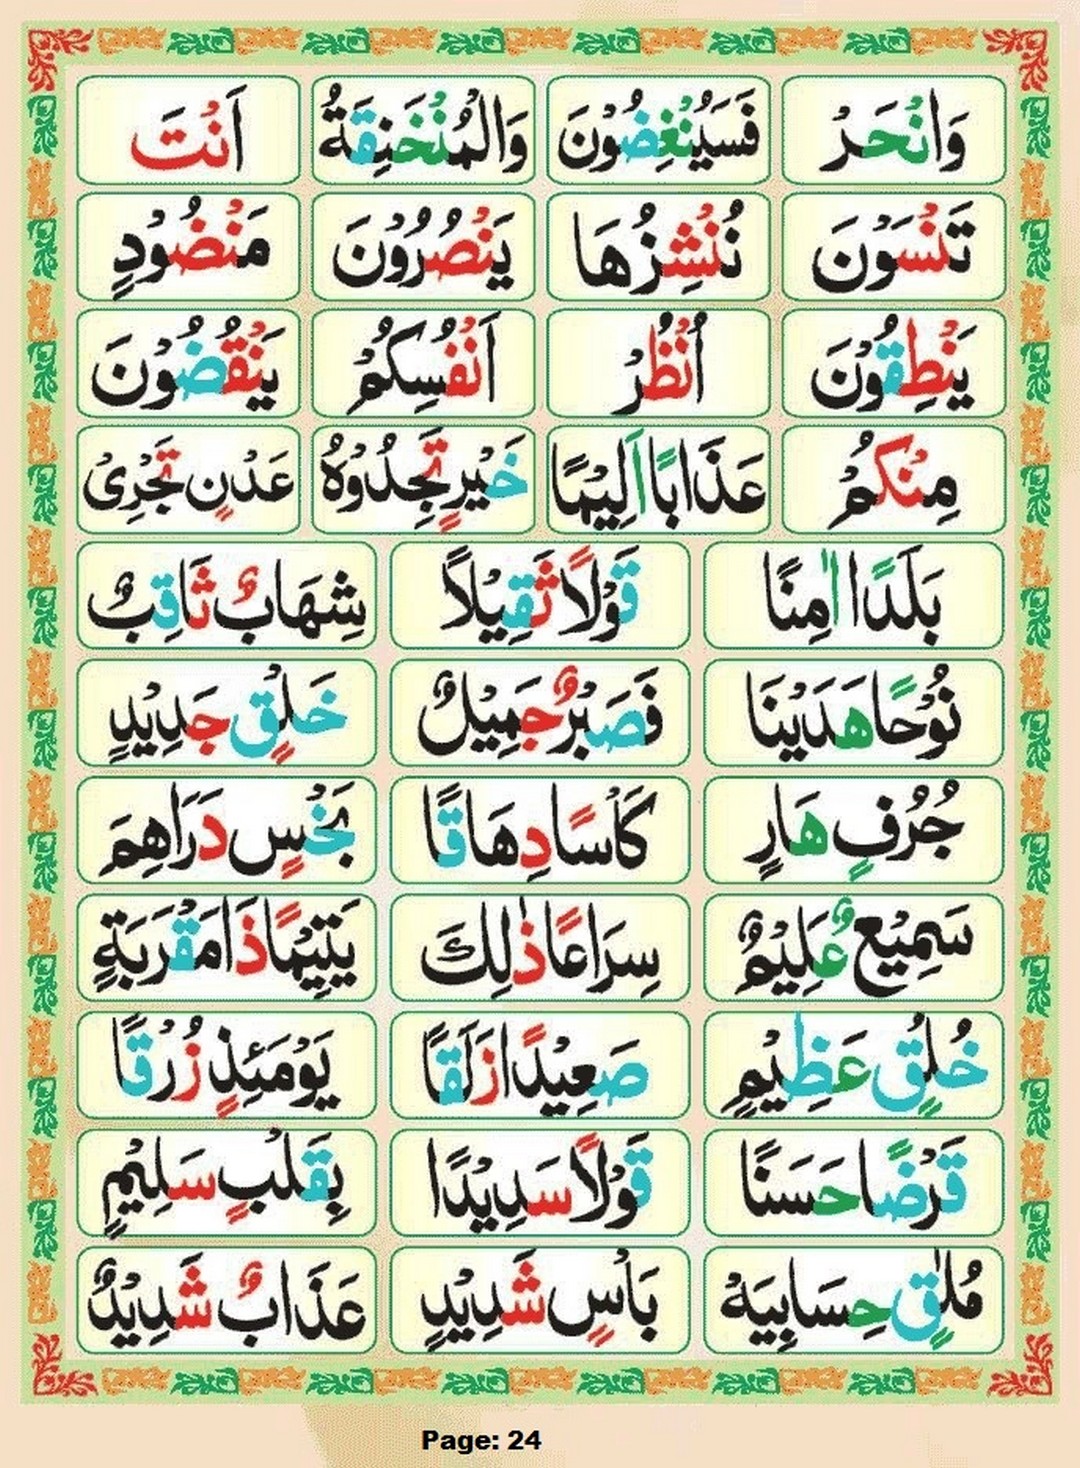 وَانْحَرْ فَسَيُنْغِضُوْنَ وَالْمُنْخَنِقَةُ اَنْتَ
تَنْسَوْنَ نُنْشِزُهَا يَنْصُرُوْنَ مَنْضُوْدٍ
يَنْطِقُوْنَ اُنْظُرْ اَنْفُسِكُمْ يَنْقُضُوْنَ
مِنْكُمْ عَذَابًا اَلِيْمًا خَيْرٍ تَجِدُوْهُ عَدْنٍ تَجْرِىْ
بَلَدًا اٰمِنًا قَوْلًا ثَقِيْلًا شِهَابٌ ثَاقِبٌ
نُوْحًا هَدَيْنَا فَصَبْرٌ جَمِيْلٌ خَلْقٍ جَدِيْدٍ
جُرُفٍ هَارٍ كَاْسًا دِهَاقًا بَخْسٍ دَرَاهِمَ
سَمِيْعٌ عَلِيْمٌ سِرَاعًا ذٰلِكَ يَتِيْمًا ذَا مَقْرَبَةٍ
خُلُقٍ عَظِيْمٍ صَعِيْدًا زَلَقًا يَوْمَئِذٍ زُرْقًا
قَرْضًا حَسَنًا قَوْلًا سَدِيْدًا بِقَلْبٍ سَلِيْمٍ
مُلٰقٍ حِسَابِيَهْ بَاْسٍ شَدِيْدٍ عَذَابٌ شَدِيْدٌ
Page: 24